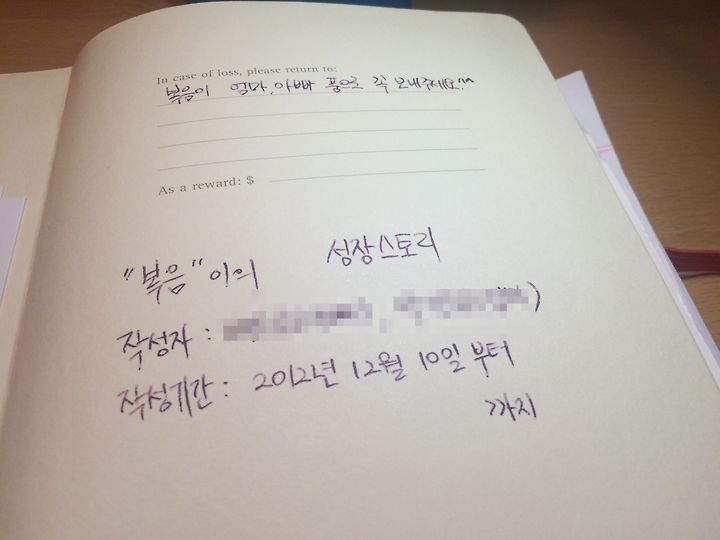 In case of loss, please return to:
복음이 엄마,아빠 품으로 꼭 보내주세요^^
As a reward: $
"복음"이의 성장스토리
작성자 : , )
작성기간 : 2012년 12월 10일 부터
까지